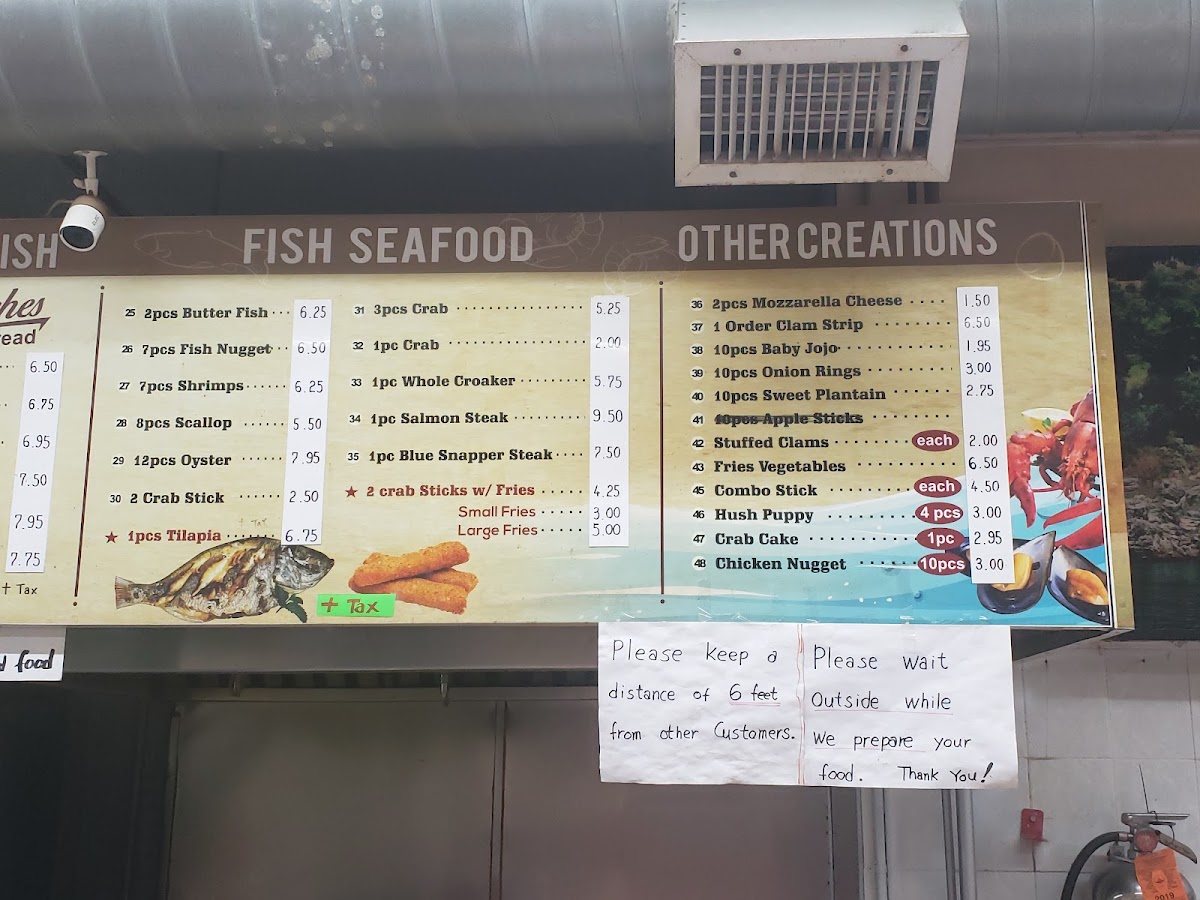 ISH
hes
read
6.50
6.75
6.95
7.50
7.95
7.75
+ Tax
d food
FISH SEAFOOD
25 2pcs Butter Fish ... 6.25
26 7pcs Fish Nugget .. 6.50
27 7pcs Shrimps ...... 6.25
28 8pcs Scallop ...... 5.50
29 12pcs Oyster ...... 7.95
30 2 Crab Stick ...... 2.50
+ Tax
★ 1pcs Tilapia ....... 6.75
31 3pcs Crab ............ 5.25
32 1pc Crab ............ 2.00
33 1pc Whole Croaker ........ 5.75
34 1pc Salmon Steak ........ 9.50
35 1pc Blue Snapper Steak .... 7.50
★ 2 crab Sticks w/ Fries ..... 4.25
Small Fries ..... 3.00
Large Fries ..... 5.00
+ Tax
OTHER CREATIONS
36 2pcs Mozzarella Cheese .... 1.50
37 1 Order Clam Strip ....... 6.50
38 10pcs Baby Jojo ......... 1.95
39 10pcs Onion Rings ........ 3.00
40 10pcs Sweet Plantain ..... 2.75
41 10pcs Apple Sticks .......
42 Stuffed Clams ....... each 2.00
43 Fries Vegetables ........ 6.50
45 Combo Stick ....... each 4.50
46 Hush Puppy ....... 4 pcs 3.00
47 Crab Cake ........ 1pc 2.95
48 Chicken Nugget ..... 10pcs 3.00
Please keep a
distance of 6 feet
from other Customers.
Please wait
Outside while
We prepare your
food. Thank You!
2019